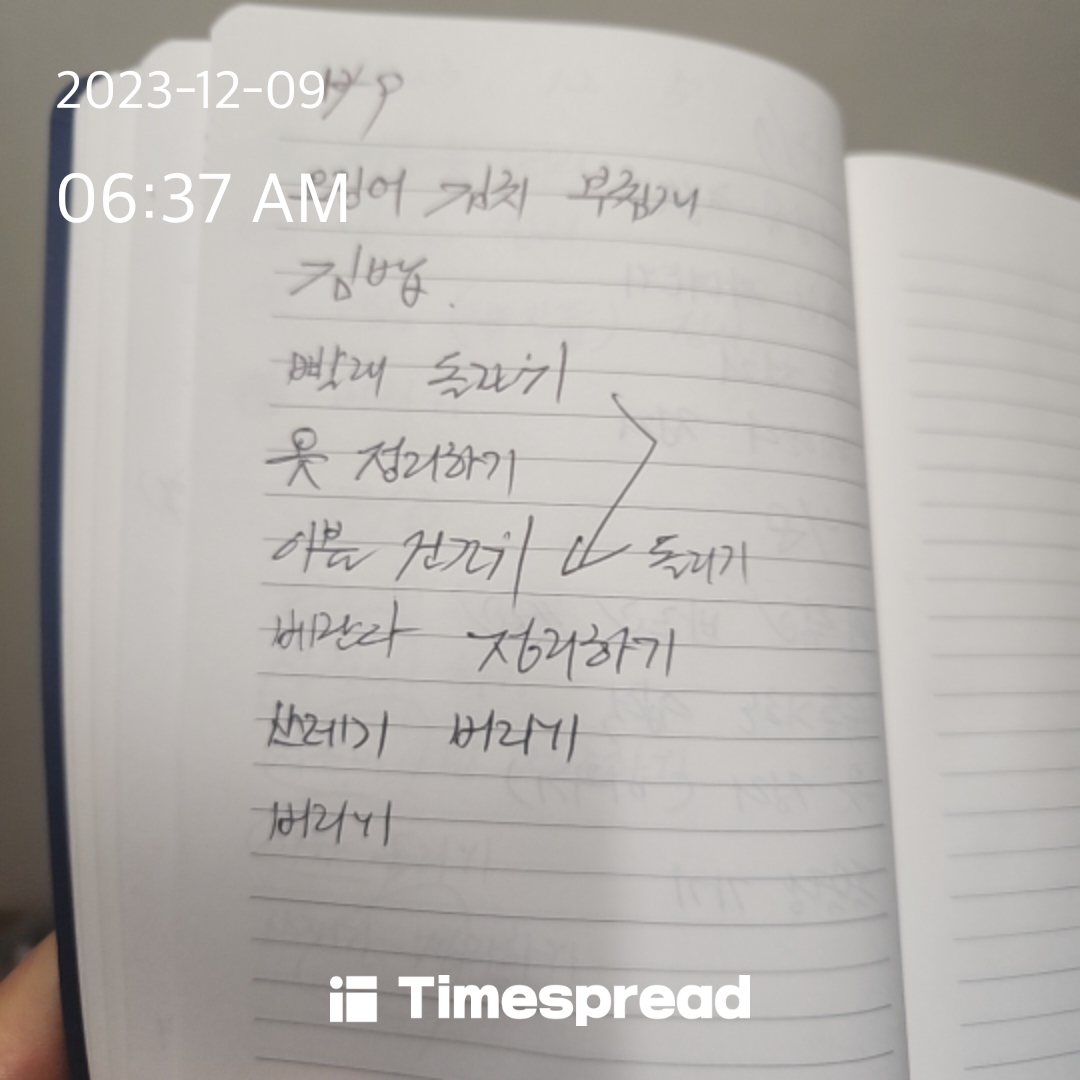 2023-12-09
12/9
06:37 AM
오징어 김치 부침개
김밥.
빨래 돌리기
옷 정리하기
이불 걷기 돌리기
베란다 정리하기
쓰레기 버리기
버리기
Timespread